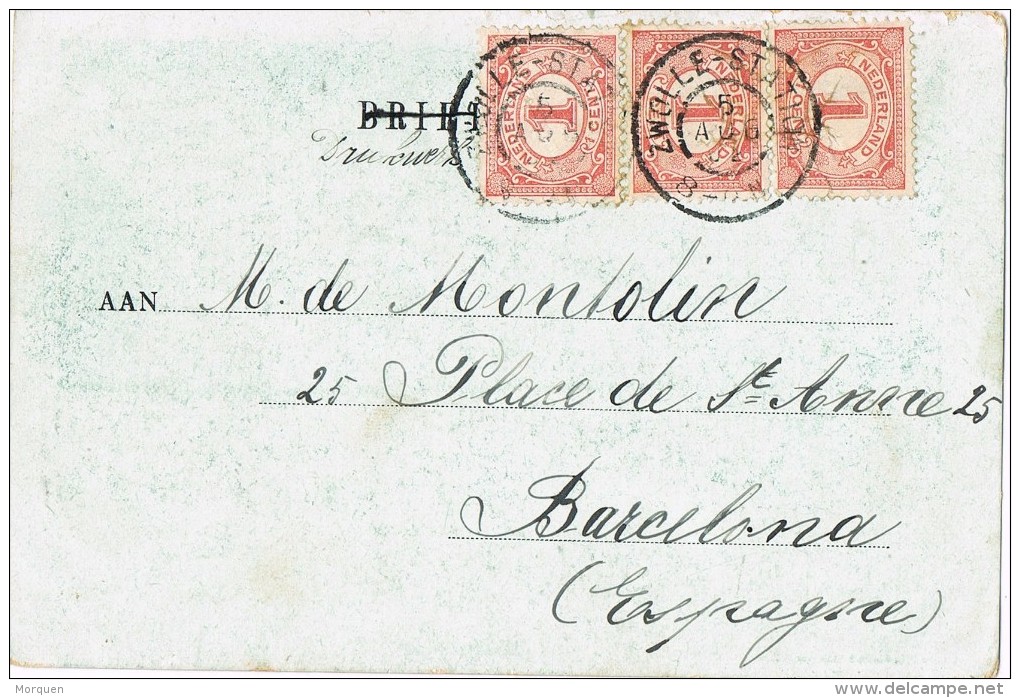 NEDERLAND 1 CENT
NEDERLAND 1
NEDERLAND 1
ZWOLLE-STATION
5
AUG
ZWOLLE-STATION
5
AUG
02
8
BRIEF
Drukwerk
AAN M. de Montolin
25 Place de St Anne 25
Barcelona
(Espagne)
Morquen
delcampe.net